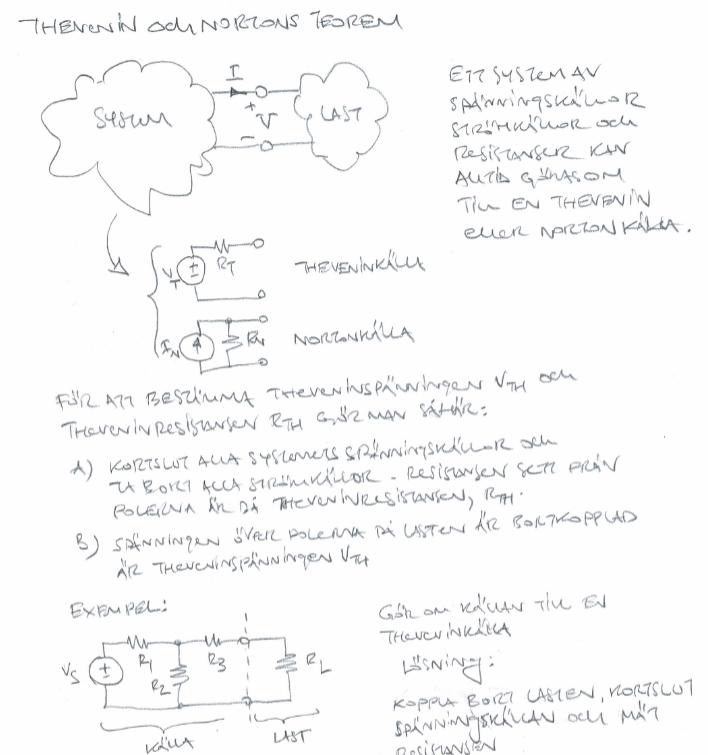 THEVENIN och NORTONS TEOREM
SYSTEM
I
+
V
-
LAST
ETT SYSTEM AV
SPÄNNINGSKÄLLOR
STRÖMKÄLLOR och
RESISTANSER KAN
ALLTID GÖRAS OM
TILL EN THEVENIN
eller NORTONKÄLLA.
V_T
±
R_T
THEVENINKÄLLA
I_N
R_N
NORTONKÄLLA
FÖR ATT BESTÄMMA THEVENINSPÄNNINGEN V_TH och
THEVENINRESISTANSEN R_TH GÖR MAN SÅHÄR:
A) KORTSLUT ALLA SYSTEMETS SPÄNNINGSKÄLLOR och
TA BORT ALLA STRÖMKÄLLOR - RESISTANSEN SETT FRÅN
POLERNA ÄR DÅ THEVENINRESISTANSEN, R_TH.
B) SPÄNNINGEN ÖVER POLERNA DÅ LASTEN ÄR BORTKOPPLAD
ÄR THEVENINSPÄNNINGEN V_TH
EXEMPEL:
V_S
±
R_1
R_2
R_3
R_L
KÄLLA
LAST
GÖR OM KÄLLAN TILL EN
THEVENINKÄLLA
LÖSNING:
KOPPLA BORT LASTEN, KORTSLUT
SPÄNNINGSKÄLLAN och MÄT
RESISTANSEN